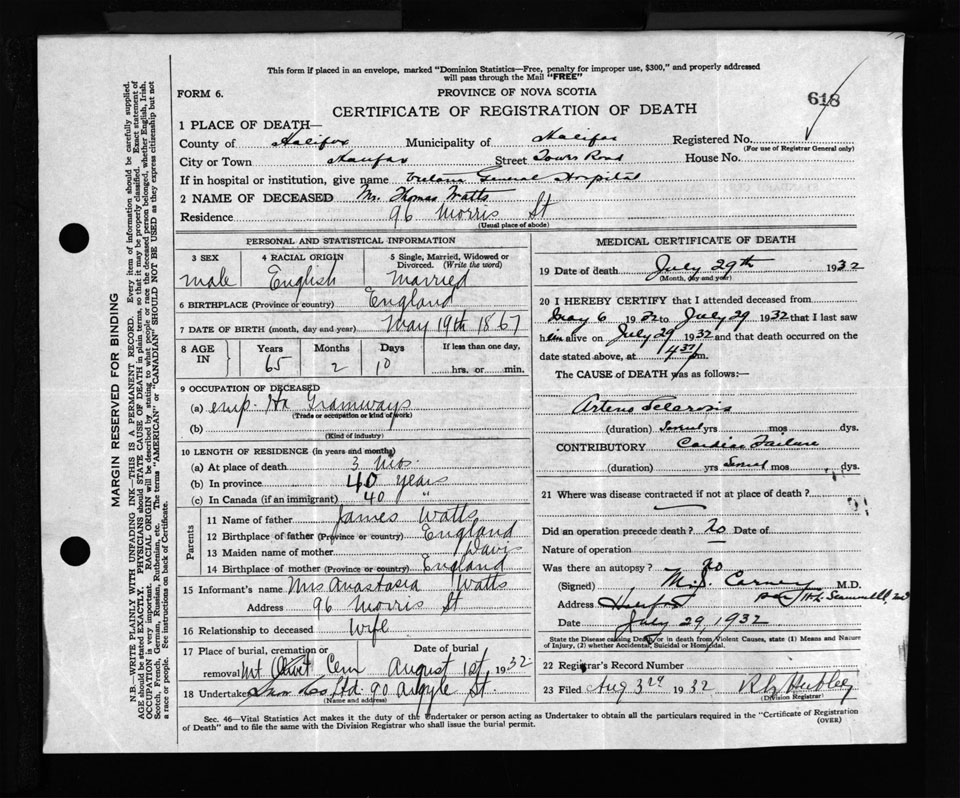 This form if placed in an envelope, marked "Dominion Statistics—Free, penalty for improper use, $300," and properly addressed
will pass through the Mail "FREE"
FORM 6.
PROVINCE OF NOVA SCOTIA
618
CERTIFICATE OF REGISTRATION OF DEATH
1 PLACE OF DEATH—
County of Halifax Municipality of Halifax Registered No.
(For use of Registrar General only)
City or Town Halifax Street Tower Road House No.
If in hospital or institution, give name Victoria General Hospital
2 NAME OF DECEASED Mr. Thomas Watts
Residence 96 Morris St
(Usual place of abode)
PERSONAL AND STATISTICAL INFORMATION
3 SEX 4 RACIAL ORIGIN 5 Single, Married, Widowed or
Divorced. (Write the word)
male English Married
6 BIRTHPLACE (Province or country) England
7 DATE OF BIRTH (month, day and year) May 19th 1867
8 AGE IN Years Months Days If less than one day,
65 2 10 hrs. or min.
9 OCCUPATION OF DECEASED
(a) emp. Tramways
(Trade or occupation or kind of work)
(b)
(Kind of industry)
10 LENGTH OF RESIDENCE (in years and months)
(a) At place of death 3 mos
(b) In province 40 years
(c) In Canada (if an immigrant) 40 "
Parents
11 Name of father James Watts
12 Birthplace of father (Province or country) England
13 Maiden name of mother Davis
14 Birthplace of mother (Province or country) England
15 Informant's name Mrs Anastasia Watts
Address 96 Morris St
16 Relationship to deceased Wife
17 Place of burial, cremation or Date of burial
removal Mt Olivet Cem August 1st, 1932
18 Undertaker Snow Co Ltd. 90 Argyle St.
(Name and address)
MEDICAL CERTIFICATE OF DEATH
19 Date of death July 29th 1932
(Month, day and year)
20 I HEREBY CERTIFY that I attended deceased from
May 6 1932 to July 29 1932 that I last saw
him alive on July 29 1932 and that death occurred on the
date stated above, at m.
The CAUSE of DEATH was as follows:—
Arterio Sclerosis
(duration) Several yrs mos dys.
CONTRIBUTORY Cardiac Failure
(duration) yrs Several mos dys.
21 Where was disease contracted if not at place of death?
Did an operation precede death? No Date of
Nature of operation
Was there an autopsy? No
(Signed) M.J. Carney M.D.
Address Halifax
Date July 29, 1932
State the Disease causing Death, or in death from Violent Causes, state (1) Means and Nature
of Injury, (2) whether Accidental, Suicidal or Homicidal.
22 Registrar's Record Number
23 Filed Aug 3rd 1932
(Division Registrar)
Sec. 46—Vital Statistics Act makes it the duty of the Undertaker or person acting as Undertaker to obtain all the particulars required in the "Certificate of Registration
of Death" and to file the same with the Division Registrar who shall issue the burial permit.
(OVER)
MARGIN RESERVED FOR BINDING
N.B.—WRITE PLAINLY WITH UNFADING INK—THIS IS A PERMANENT RECORD. Every item of information should be carefully supplied.
AGE should be stated EXACTLY. PHYSICIANS should STATE CAUSE OF DEATH in plain terms, so that it may be properly classified. Exact statement of
OCCUPATION is very important. RACIAL ORIGIN will be described by stating to what people or race the deceased person belonged, whether English, Irish,
Scotch, French, German, Russian, Ruthenian, etc. The terms "AMERICAN" or "CANADIAN" SHOULD NOT BE USED as they express citizenship but not
a race or people. See instructions on back of Certificate.